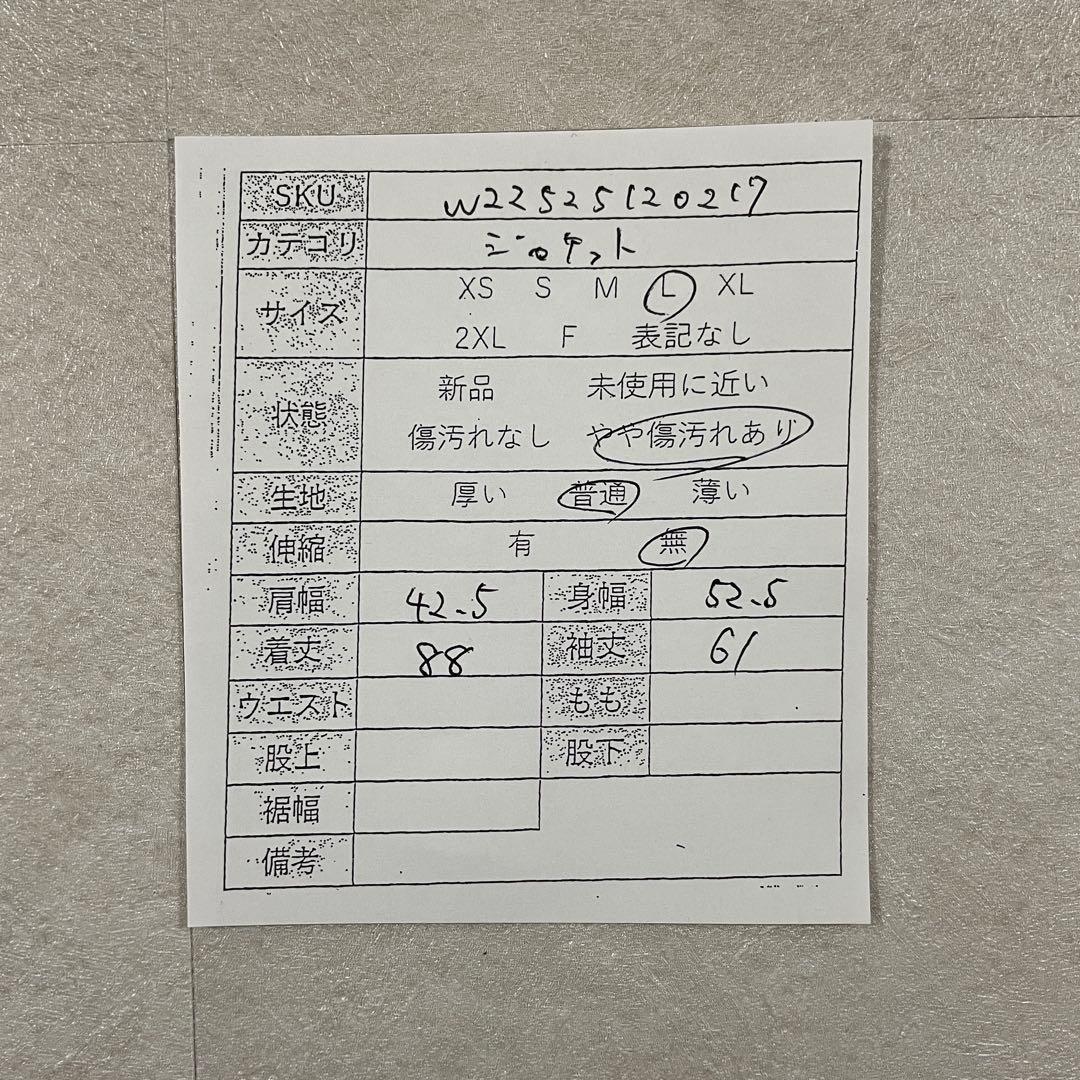 SKU W22525120217
カテゴリ ジャケット
サイズ XS S M L XL
2XL F 表記なし
状態 新品 未使用に近い
傷汚れなし やや傷汚れあり
生地 厚い 普通 薄い
伸縮 有 無
肩幅 42.5 身幅 52.5
着丈 88 袖丈 61
ウエスト もも
股上 股下
裾幅
備考